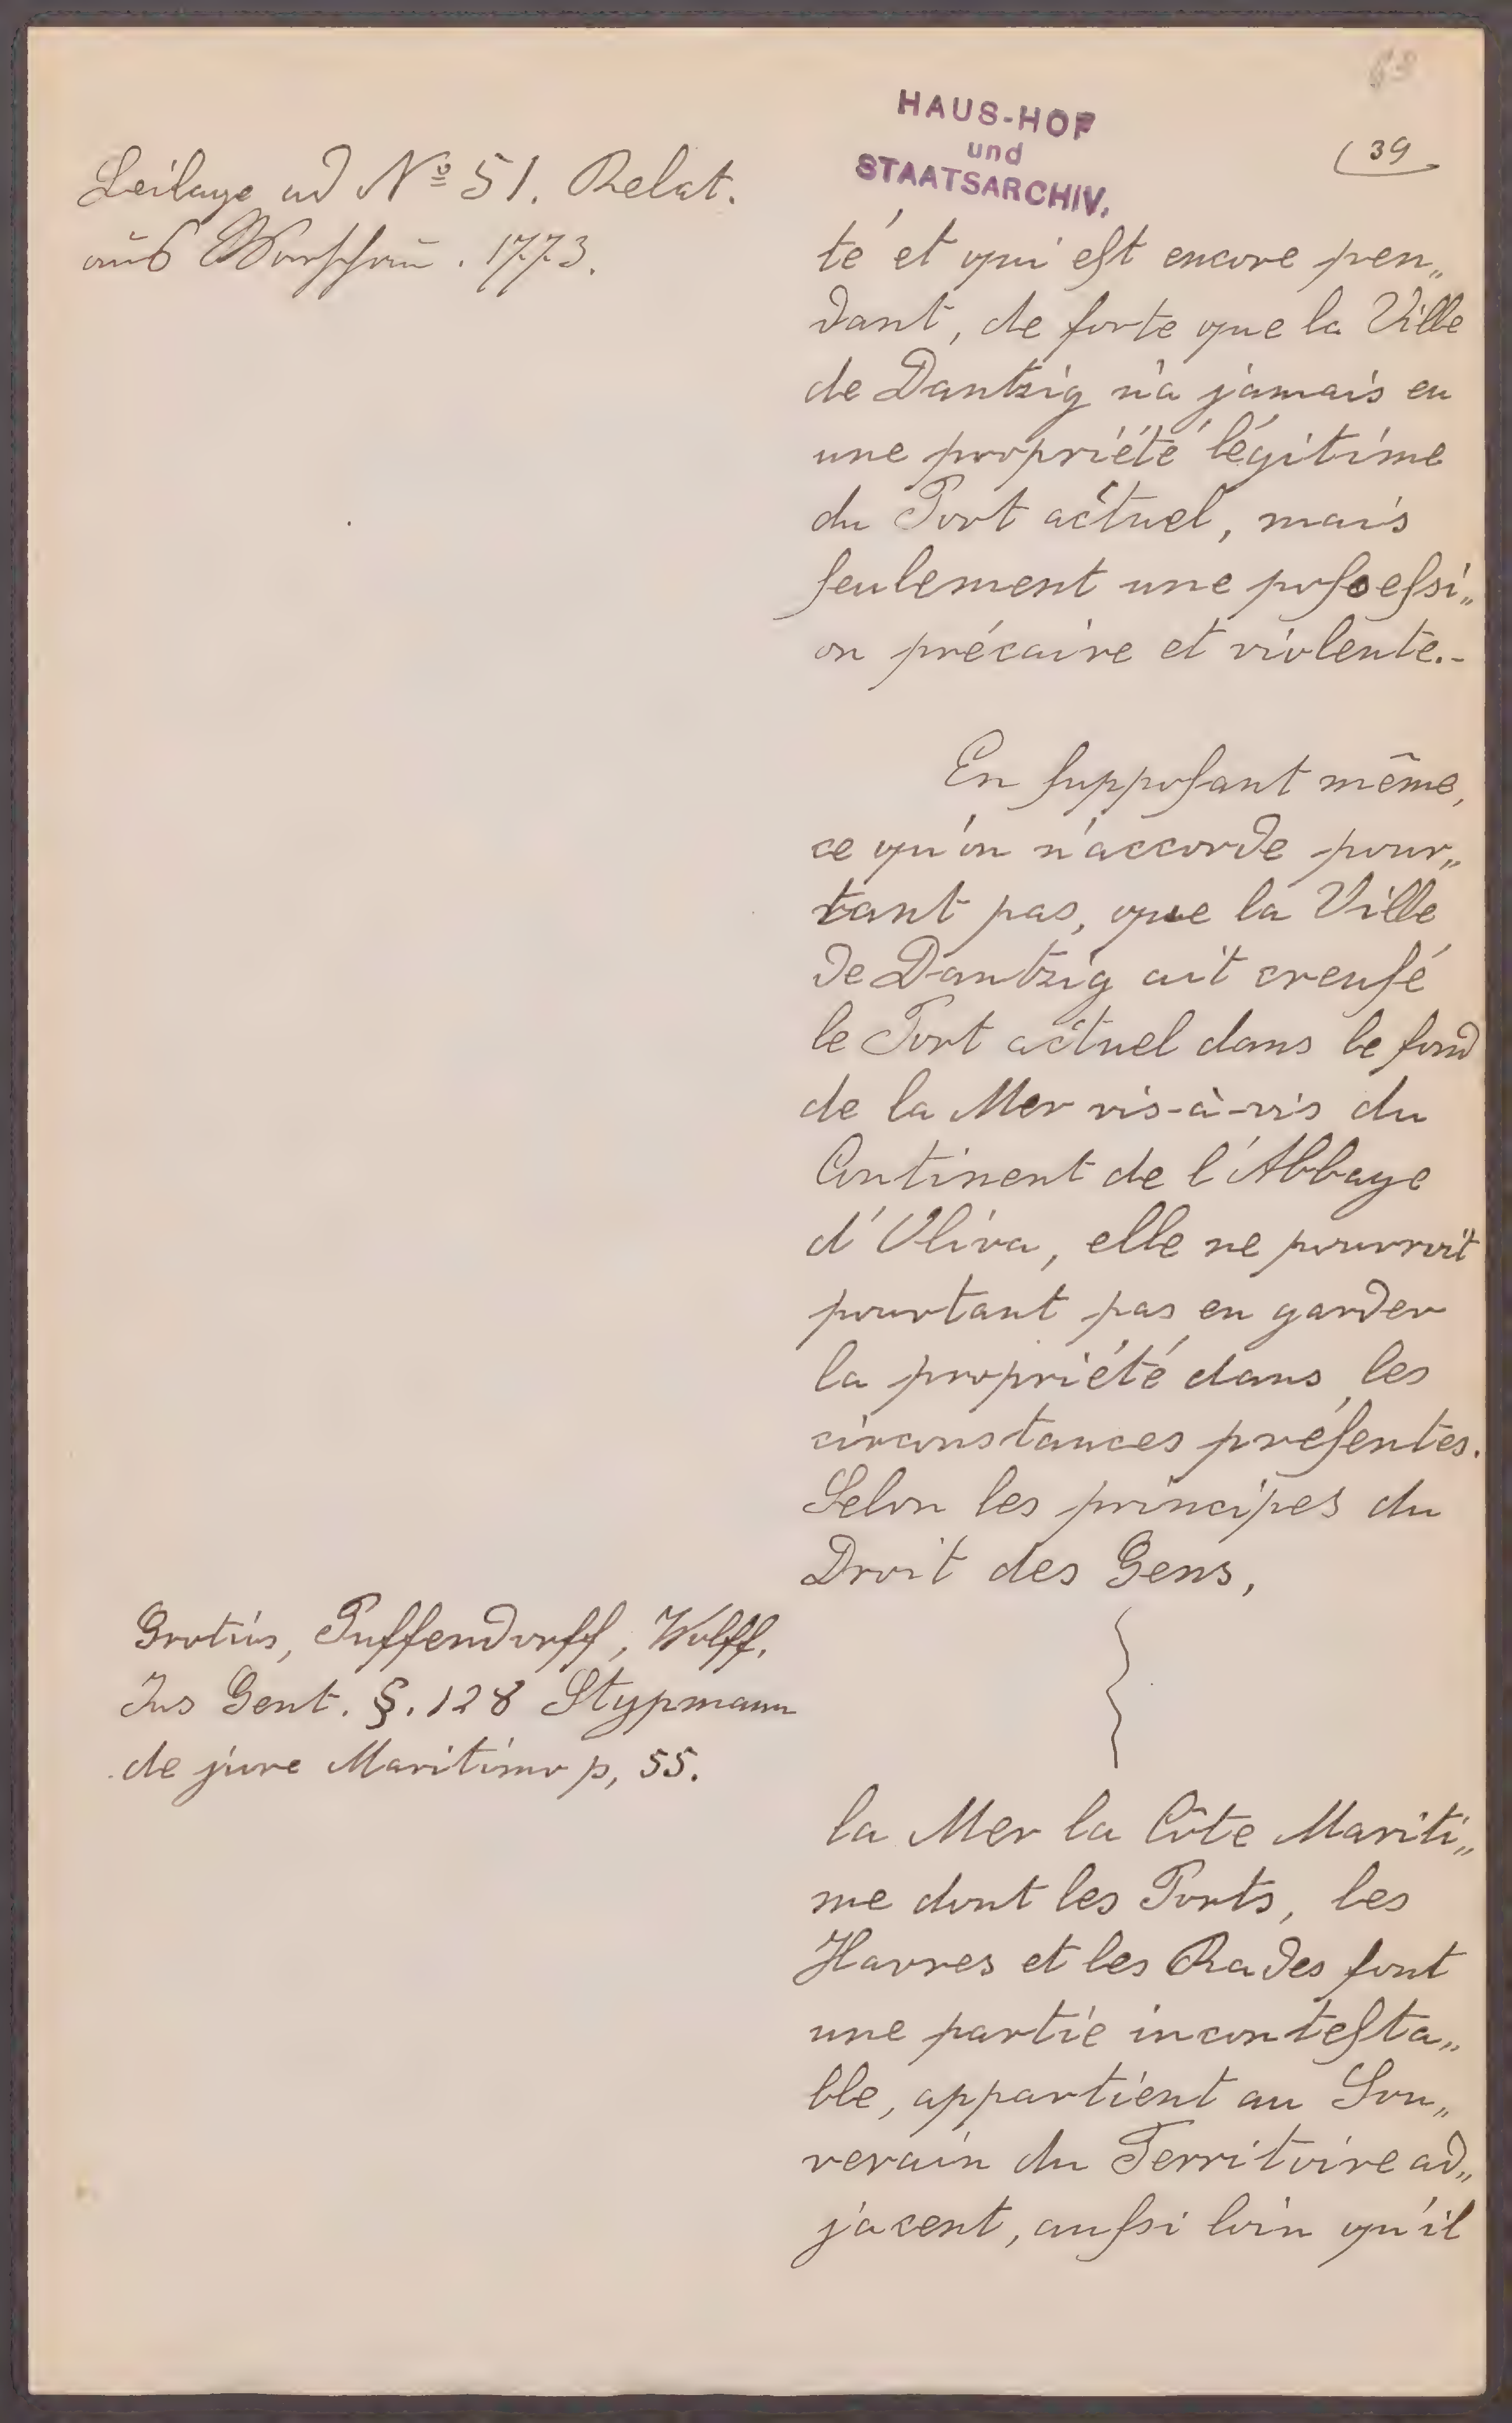 63
HAUS-HOF
und
STAATSARCHIV.
39
Beilage ad Nº 51. Relat.
aus Warschau. 1773.
té et qui eſt encore pen„
dant, de ſorte que la Ville
de Dantzig n'a jamais eu
une propriété légitime
du Port actuel, mais
ſeulement une poſseſsi„
on précaire et violente.-
En ſuppoſant même,
ce qu'on n'accorde pour„
tant pas, que la Ville
de Dantzig ait creuſé
le Port actuel dans le fond
de la Mer vis-à-vis du
Continent de l'Abbaye
d'Oliva, elle ne pourroit
pourtant pas en garder
la propriété dans les
circonstances préſentes.
Selon les principes du
Droit des Gens,
Grotius, Puffendorff, Wolff.
Jus Gent. §. 128 Stypmann
de jure Maritimo p, 55.
la Mer la Côte Mariti„
me dont les Ports, les
Havres et les Rades ſont
une partie inconteſta„
ble, appartient au Sou„
verain du Territoire ad„
jacent, auſsi loin qu'il